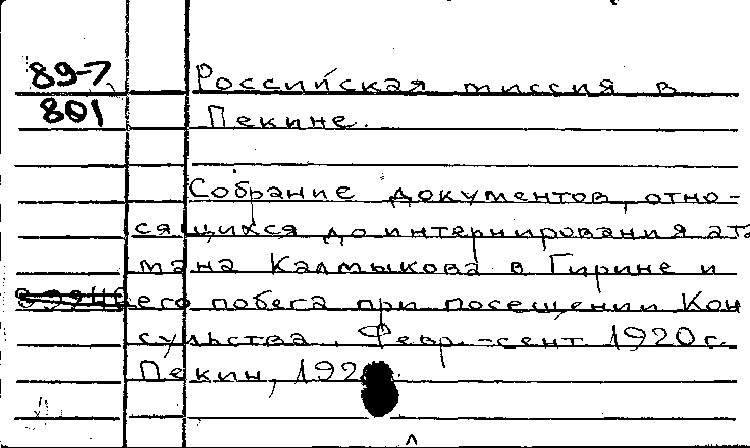 89-7 Российская миссия в
801 Пекине.
Собрание документов, отно-
сящихся до интернирования ата
мана Калмыкова в Гирине и
его побега при посещении Кон
сульства. Февр.-сент 1920 г.
Пекин,